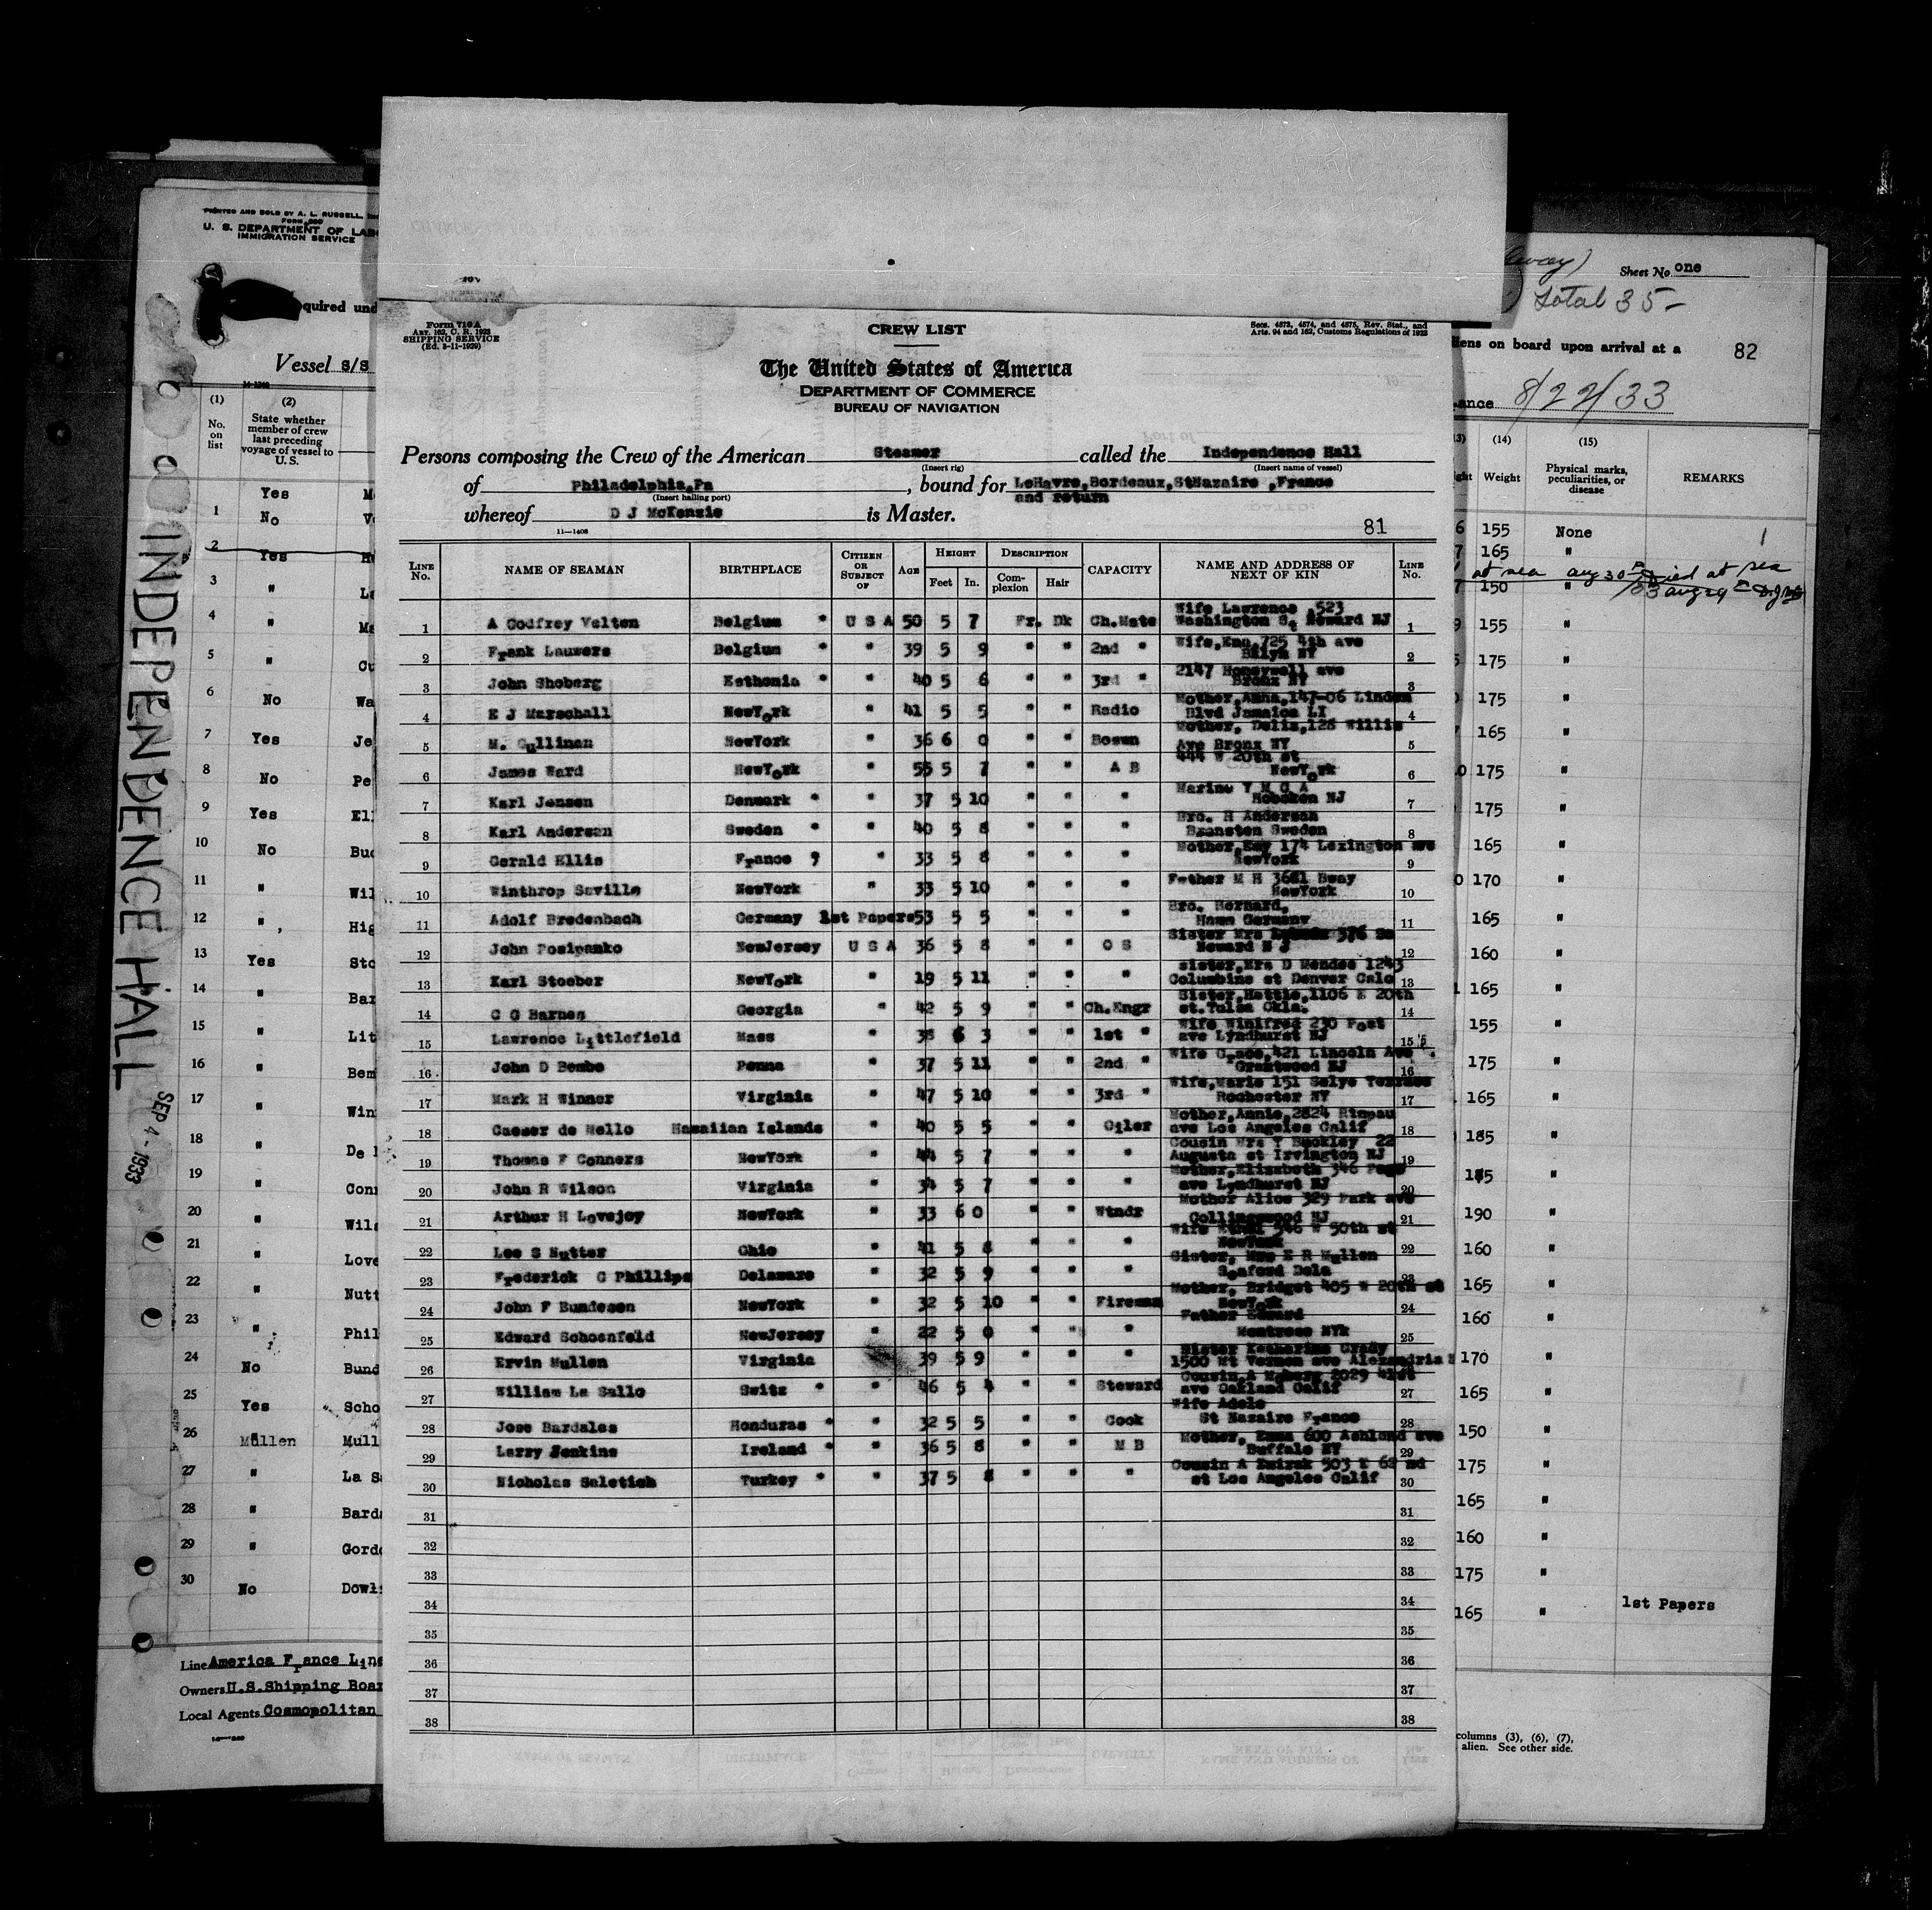 PRINTED AND SOLD BY A. L. RUSSELL, INC
U. S. DEPARTMENT OF LAB
IMMIGRATION SERVICE
quired und
Vessel S/S
(1) (2)
No. on list
State whether member of crew last preceding voyage of vessel to U. S.
Yes M
1 No V
2 Yes
3 " La
4 " Ma
5 " Cu
6 No Wa
7 Yes Je
8 No Pe
9 Yes Ell
10 No Buc
11 " Wil
12 " , Hig
13 Yes Sto
14 " Bar
15 " Lit
16 " Bem
17 " Win
18 " De
19 " Conn
20 " Wils
21 " Love
22 " Nutt
23 " Phil
24 No Bund
25 Yes Scho
26 Mullen Mull
27 " La S
28 " Bard
29 " Gord
30 No Dowl
Line America France Line
Owners U.S.Shipping Boar
Local Agents Cosmopolitan
INDEPENDENCE HALL
SEP 4 - 1933
Form 710A
Art. 162, C. R. 1923
SHIPPING SERVICE
(Ed. 3-11-1929)
CREW LIST
Secs. 4573, 4574, and 4575, Rev. Stat., and
Arts. 94 and 162, Customs Regulations of 1923
The United States of America
DEPARTMENT OF COMMERCE
BUREAU OF NAVIGATION
Persons composing the Crew of the American Steamer called the Independence Hall
(Insert rig) (Insert name of vessel)
of Philadelphia,Pa , bound for LeHavre,Bordeaux,StNazaire ,France
(Insert hailing port) and return
whereof D J McKenzie is Master.
11—1408 81
LINE No. NAME OF SEAMAN BIRTHPLACE CITIZEN OR SUBJECT OF AGE HEIGHT Feet In. DESCRIPTION Complexion Hair CAPACITY NAME AND ADDRESS OF NEXT OF KIN LINE No.
1 A Godfrey Velten Belgium * U S A 50 5 7 Fr. Dk Ch.Mate Wife Lawrence ,523 Washington St Neward NJ 1
2 Frank Lauwers Belgium * " 39 5 9 " " 2nd " Wife,Emo,725 4th ave Bklyn NY 2
3 John Shoberg Esthonia * " 40 5 6 " " 3rd " 2147 Honeywell ave Bronx NY 3
4 E J Marschall NewYork " 41 5 5 " " Radio Mother,Anna,147-06 Linden Blvd Jamaica LI 4
5 M. Cullinan NewYork " 36 6 0 " " Bosun Mother, Delia,128 Willis Ave Bronx NY 5
6 James Ward NewYork " 55 5 7 " " A B 444 W 20th st NewYork 6
7 Karl Jensen Denmark * " 37 5 10 " " " Marine Y M C A Hoboken NJ 7
8 Karl Andersen Sweden * " 40 5 8 " " " Bro. H Anderson Sweden 8
9 Gerald Ellis France , " 33 5 8 " " " Mother,Kay 174 Lexington ave NewYork 9
10 Winthrop Saville NewYork " 33 5 10 " " " Father M H 3681 Bway NewYork 10
11 Adolf Bredenbach Germany 1st Papers 53 5 5 " " " Bro. Bernard, Germany 11
12 John Posipanko NewJersey U S A 36 5 8 " " O S Sister Mrs 376 So Neward N J 12
13 Karl Stoeber NewYork " 19 5 11 " " " sister,Mrs D Mendes 1243 Columbine st Denver Calo 13
14 C G Barnes Georgia " 42 5 9 " " Ch.Engr Sister,Hattie,1106 E 20th st.Tulsa Okla. 14
15 Lawrence Littlefield Mass " 38 6 3 " " 1st " Wife Winifred 230 Post ave Lyndhurst NJ 15
16 John D Bembo Penna " 37 5 11 " " 2nd " Wife Grace,421 Lincoln Ave Grantwood NJ 16
17 Mark H Winner Virginia " 47 5 10 " " 3rd " Wife,Marie 151 Selye Terrace Rochester NY 17
18 Caeser de Mello Hawaiian Islands " 40 5 5 " " Oiler Mother,Annie,2824 Rimpau ave Los Angeles Calif 18
19 Thomas F Conners NewYork " 44 5 7 " " " Cousin Mrs T Buckley 22 Augusta st Irvington NJ 19
20 John R Wilson Virginia " 34 5 7 " " " Mother,Elizabeth 346 Page ave Lyndhurst NJ 20
21 Arthur H Lovejoy NewYork " 33 6 0 " " Wtndr Mother Alice 329 Park ave Collingswood NJ 21
22 Lee S Nutter Ohio " 41 5 8 " " " Wife 346 W 50th st NewYork 22
23 Frederick C Phillips Delaware " 32 5 9 " " " Sister, Mrs E R Mullen Seaford Dela 23
24 John F Bundesen NewYork " 32 5 10 " " Fireman Mother, Bridget 405 W 20th st NewYork 24
25 Edward Schoenfeld NewJersey " 22 5 0 " " " Father Edward Montrose NYk 25
26 Ervin Mullen Virginia 39 5 9 " " " Sister Katherine Grady 1500 Mt Vernon ave Alexandria
27 William La Salle Switz * " 46 5 4 " " Steward Cousin,A 2029 41st ave Oakland Calif 27
28 Jose Bardales Honduras * " 32 5 5 " " Cook Wife Adele St Nazaire France 28
29 Larry Jenkins Ireland * " 36 5 8 " " M B Mother, Emma 600 Ashland ave Buffalo NY 29
30 Nicholas Saletich Turkey * " 37 5 8 " " " Cousin A 503 E 62 nd st Los Angeles Calif 30
31 31
32 32
33 33
34 34
35 35
36 36
37 37
38 38
away)
Sheet No one
Total 35-
iens on board upon arrival at a 82
ance 8/22/33
(14) (15)
Weight Physical marks, peculiarities, or disease REMARKS
6 155 None 1
7 165 "
at sea Aug 30 Died at sea Aug 29
7 150 "
9 155 "
175 "
175 "
165 "
0 175 "
175 "
165 "
0 170 "
165 "
160 "
165 "
155 "
175 "
165 "
185 "
185 "
190 "
160 "
165 "
160 "
170 "
165 "
150 "
175 "
165 "
160 "
175 "
165 " 1st Papers
columns (3), (6), (7),
alien. See other side.